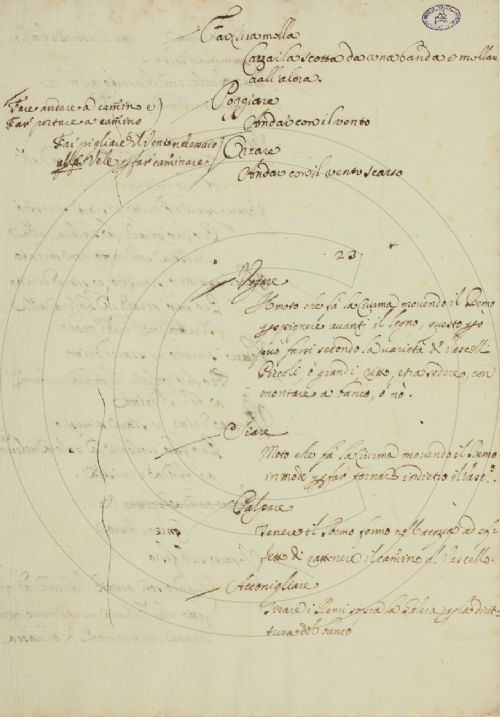 Far tira molla
Cazzar la scotta da una banda e mollar
dall'altra.
Poggiare
Andar con il vento
Fare andare a camino e
Far portare a camino
Far pigliare il vento nel mezo
alle Vele p far caminare
Orzare
Andar con il vento scarso
23
Vogare
Il moto che fà la Ciurma movendo il Remo
p spignere avanti il legno, questo
può farsi secondo la varietà di Vascelli
Piccoli ò grandi, et a sedere, con
montare a banco, ò nò.
Siare
Moto che fà la Ciurma movendo il Remo
in modo p far tornare indietro il Vasc.
Palpare
Tenere il Remo fermo nell'acqua ad ef=
fetto di rattenere il camino al Vascello.
Acconigliare
Tirare i Remi sopra la Galera p la dirit=
tura del banco